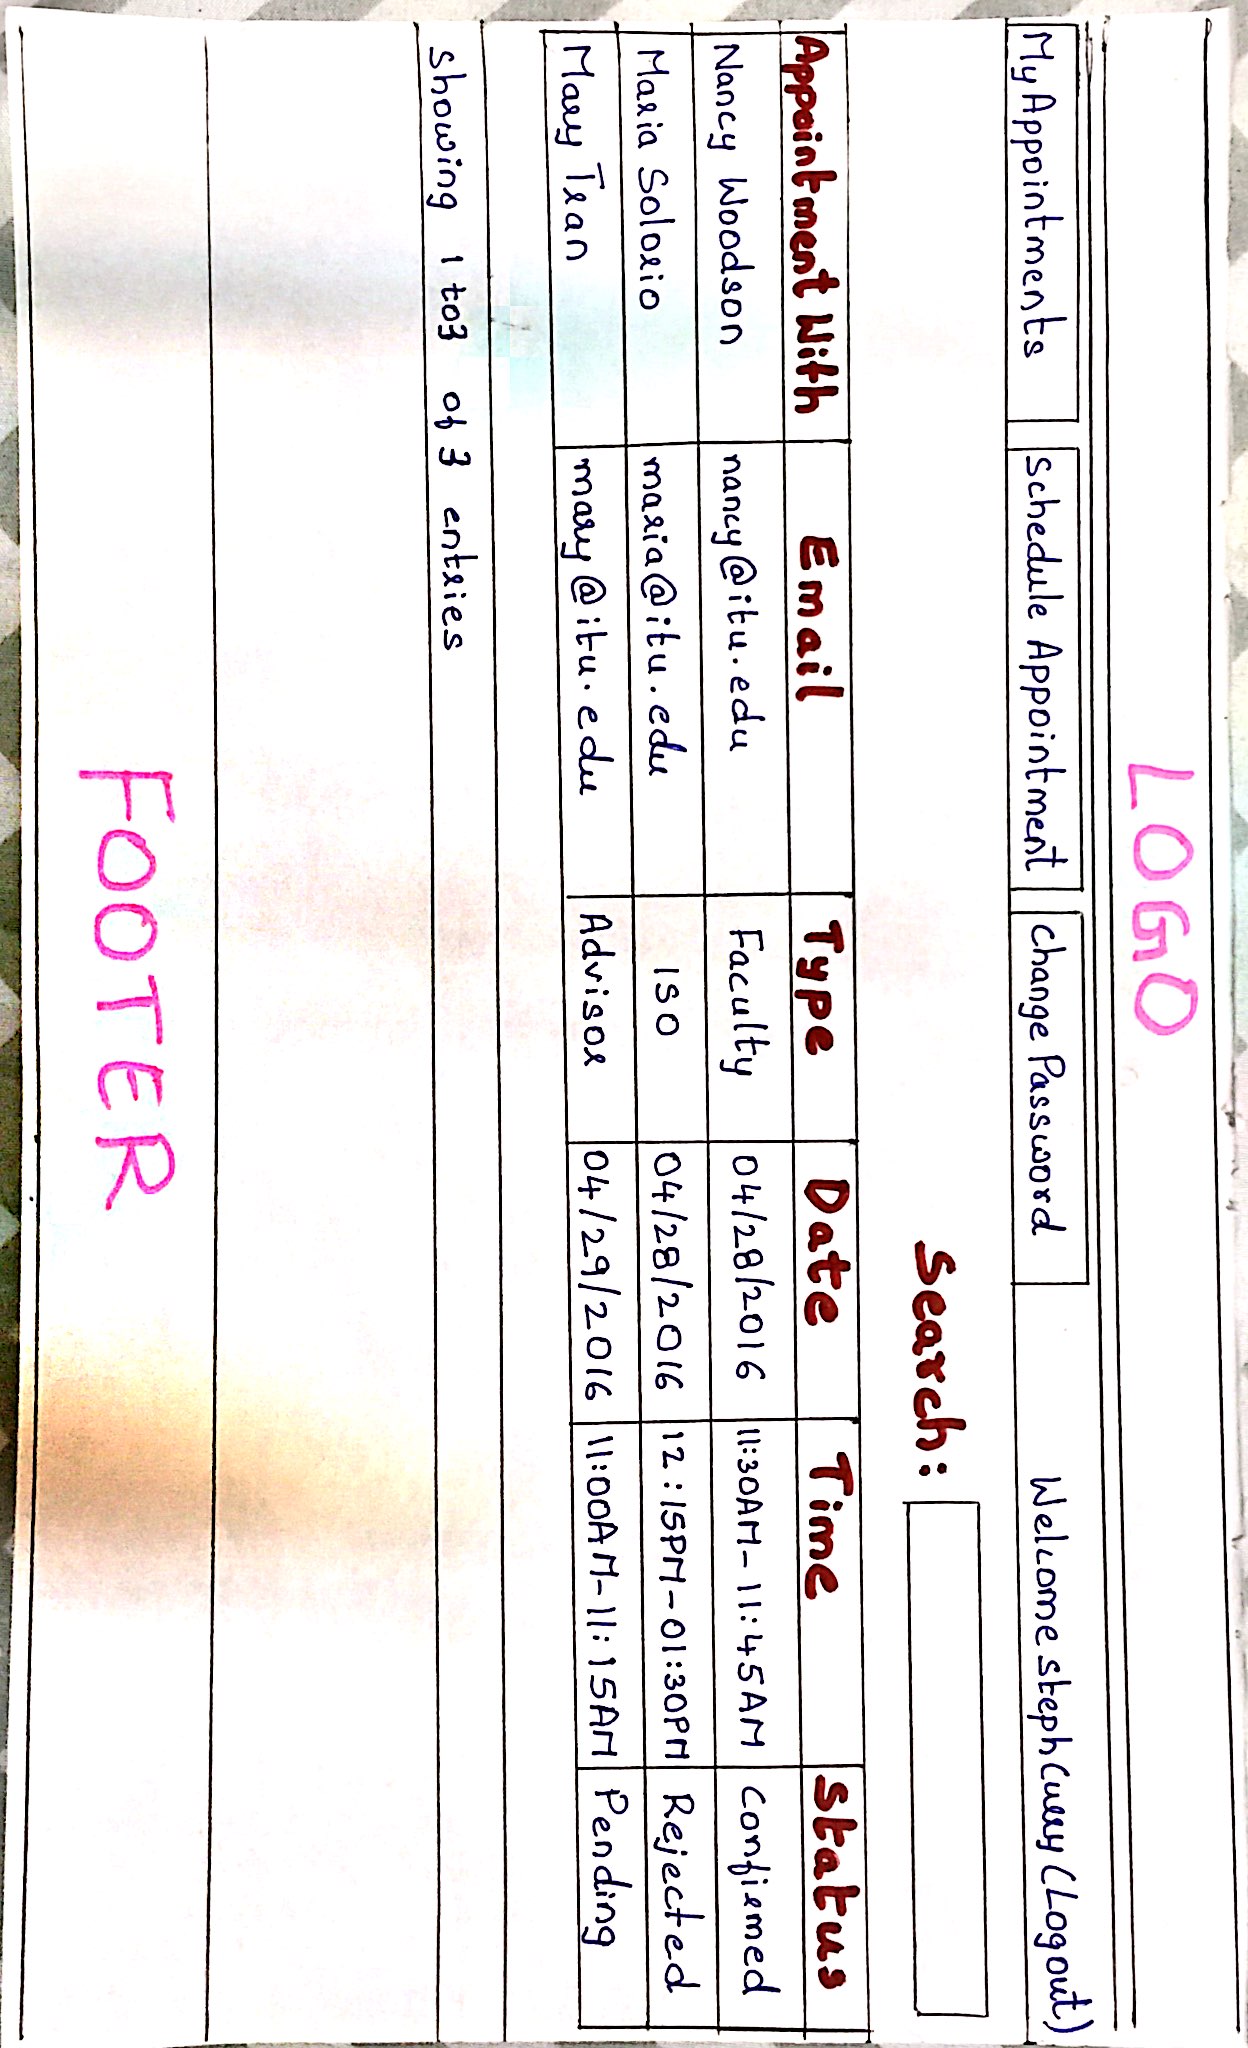 LOGO
My Appointments Schedule Appointment Change Password Welcome Steph Curry (Logout)
Search:
Appointment With Email Type Date Time Status
Nancy Woodson nancy@itu.edu Faculty 04/28/2016 11:30AM-11:45AM Confirmed
Maria Solorio maria@itu.edu ISO 04/28/2016 12:15PM-01:30PM Rejected
Mary Tran mary@itu.edu Advisor 04/29/2016 11:00AM-11:15AM Pending
Showing 1 to 3 of 3 entries
FOOTER